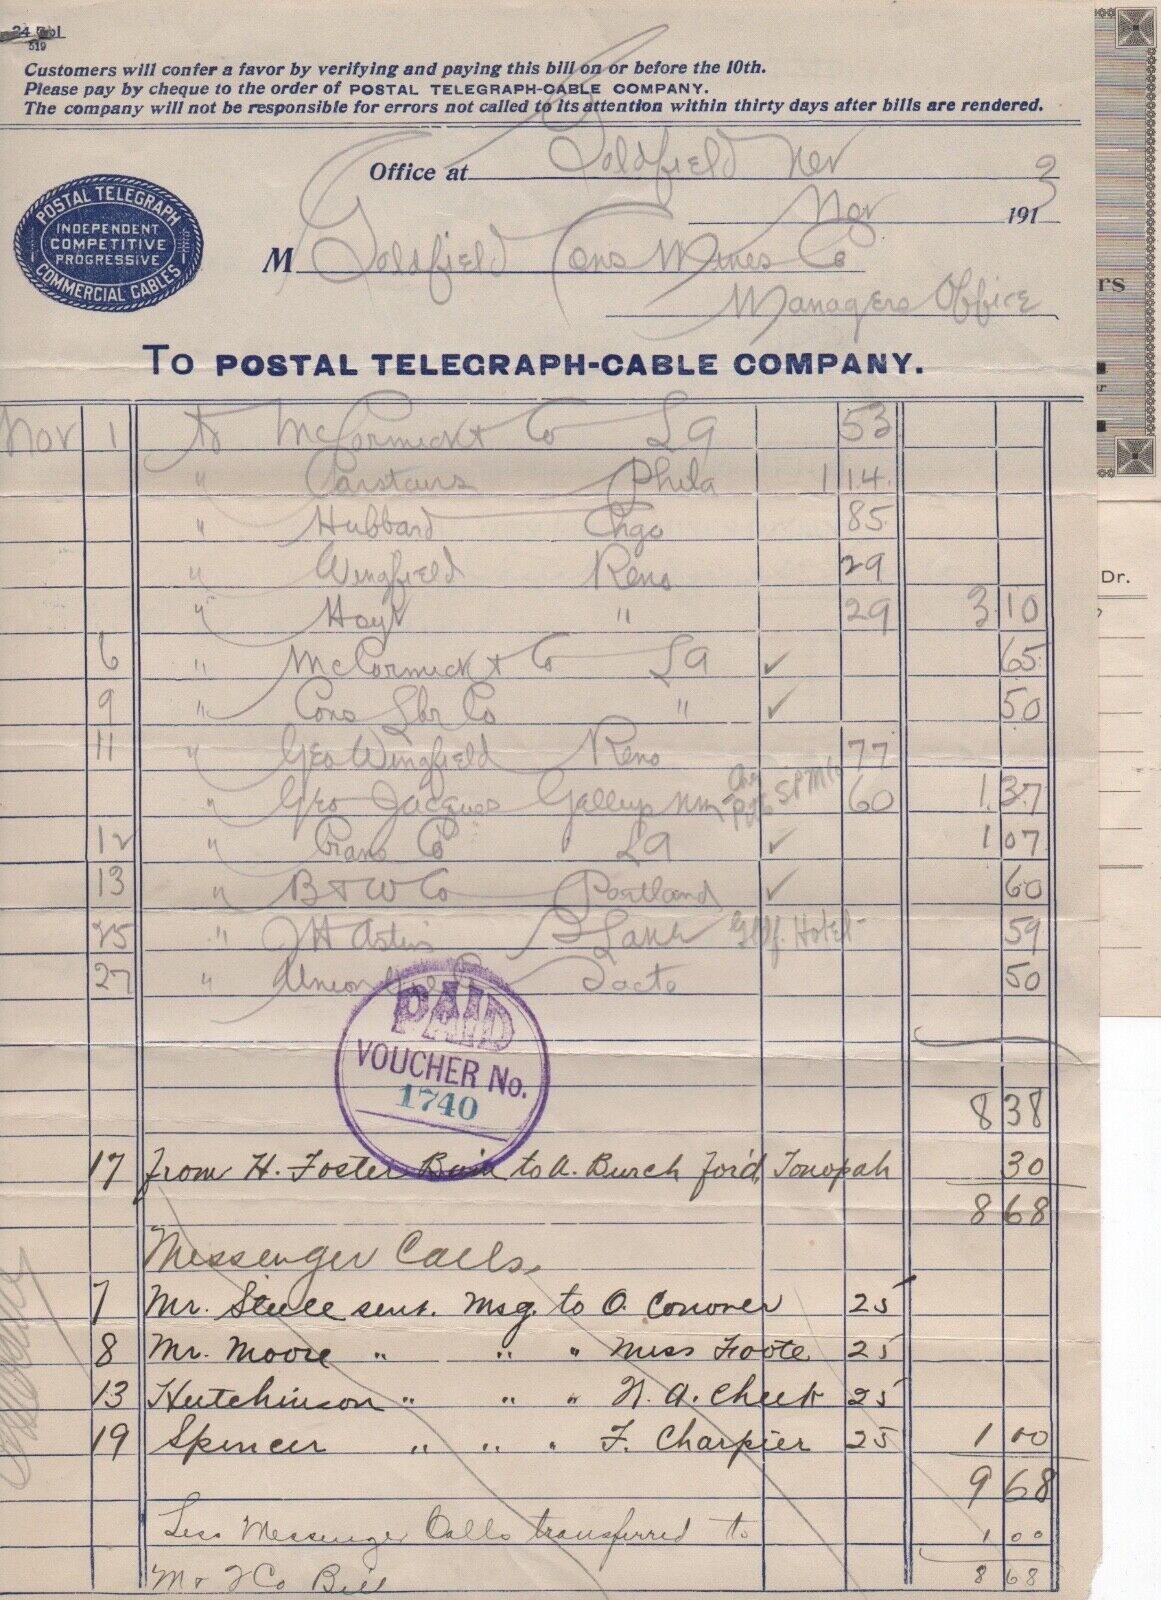 24 Col
519
Customers will confer a favor by verifying and paying this bill on or before the 10th.
Please pay by cheque to the order of POSTAL TELEGRAPH-CABLE COMPANY.
The company will not be responsible for errors not called to its attention within thirty days after bills are rendered.
Office at Goldfield Nev
Nov 1913
POSTAL TELEGRAPH
INDEPENDENT
COMPETITIVE
PROGRESSIVE
COMMERCIAL CABLES
M Goldfield Cons Mines Co
Managers Office
TO POSTAL TELEGRAPH-CABLE COMPANY.
Nov 1 to McCormick & Co LA 53
" Carstairs Phila 1 14
" Hubbard Chgo 85
" Wingfield Reno 29
" Hoyt " 29 3 10
6 " McCormick & Co LA ✓ 65
9 " Cons Lbr Co " ✓ 50
11 " Geo Wingfield Reno 77
" Geo Jacques Gallup NM 60 1 37
12 " Crane Co LA ✓ 1 07
13 " B & W Co Portland ✓ 60
25 " J H S Lake Gldf. Hotel 59
27 " Union Sacto 50
8 38
PAID
VOUCHER No.
1740
17 from H. Foster Bain to A. Burch for'd, Tonopah 30
8 68
Messenger Calls,
7 Mr. sent. Msg. to O. Conover 25
8 Mr. Moore " " " Miss Foote 25
13 Hutchinson " " " N. A. Cheek 25
19 Spencer " " " F. Charpier 25 1 00
9 68
Less Messenger Calls transferred to 1 00
M & Co Bill 8 68
rs
or
Dr.